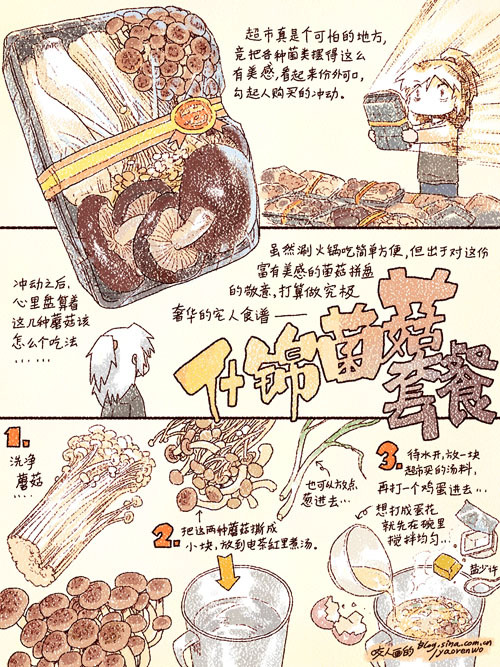 超市真是个可怕的地方,
竟把各种菌类摆得这么
有美感,看起来份外可口,
勾起人购买的冲动。
虽然涮火锅吃简单方便,但出于对这份
富有美感的菌菇拼盘
的敬意,打算做究极
奢华的宅人食谱——
冲动之后,
心里盘算着
这几种蘑菇该
怎么个吃法
……
什锦菌菇
套餐
1.
洗净
蘑菇…
也可以放点
葱进去…
2.
把这两种蘑菇撕成
小块,放到电茶缸里煮汤。
3.
待水开,放一块
超市买的汤料,
再打一个鸡蛋进去…
想打成蛋花
就先在碗里
搅拌均匀…
盐少许
妖人画的
blog.sina.com.cn
/yaorenwo